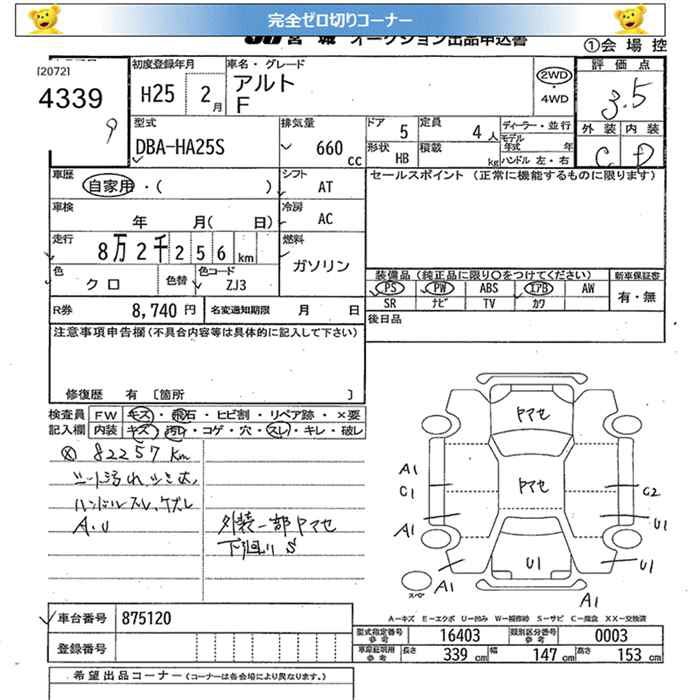 完全ゼロ切りコーナー
JU 宮城 オークション出品申込書 ①会場控
[2072] 初度登録年月 車名・グレード 評価点
4339 H25 2月 アルト F 2WD ・ 4WD 3.5
9
型式 排気量 ドア 5 定員 4人 ディーラー・並行 外装 内装
DBA-HA25S 660cc 形状 HB 積載 kg モデル年式 年 C D
ハンドル 左・右
車歴 自家用・( ) シフト AT セールスポイント(正常に機能するものに限ります)
車検 年 月( 日) 冷房 AC
走行 8万2千256km 燃料 ガソリン
色 クロ 色替 色コード ZJ3 装備品(純正品に限り○をつけてください) 新車保証書
PS PW ABS エアB AW 有・無
R券 8,740円 名変通知期限 月 日 SR ナビ TV カワ
注意事項申告欄(不具合内容等は具体的に記入して下さい) 後日品
修復歴 有 〔箇所 〕
検査員 FW キズ・飛石・ヒビ割・リペア跡・×要
記入欄 内装 キズ・汚れ・コゲ・穴・スレ・キレ・破レ
ヤマセ
ヤマセ
⊗ 82257km
シート汚れ、シミ大、
ハンドルスレ、ケズレ
A.U 外装一部ヤマセ
下回りS
A1
C1 C2
A1 U1
U1
A1 U1
スペア A1
A-キズ E-エクボ U-凹み W-補修跡 S-サビ C-腐食 XX-交換済
車台番号 875120
登録番号
型式指定番号 参考 16403 類別区分番号 参考 0003
車庫証明用 参考 長さ 339cm 幅 147cm 高さ 153cm
希望出品コーナー(コーナーは各会場により異なります。)